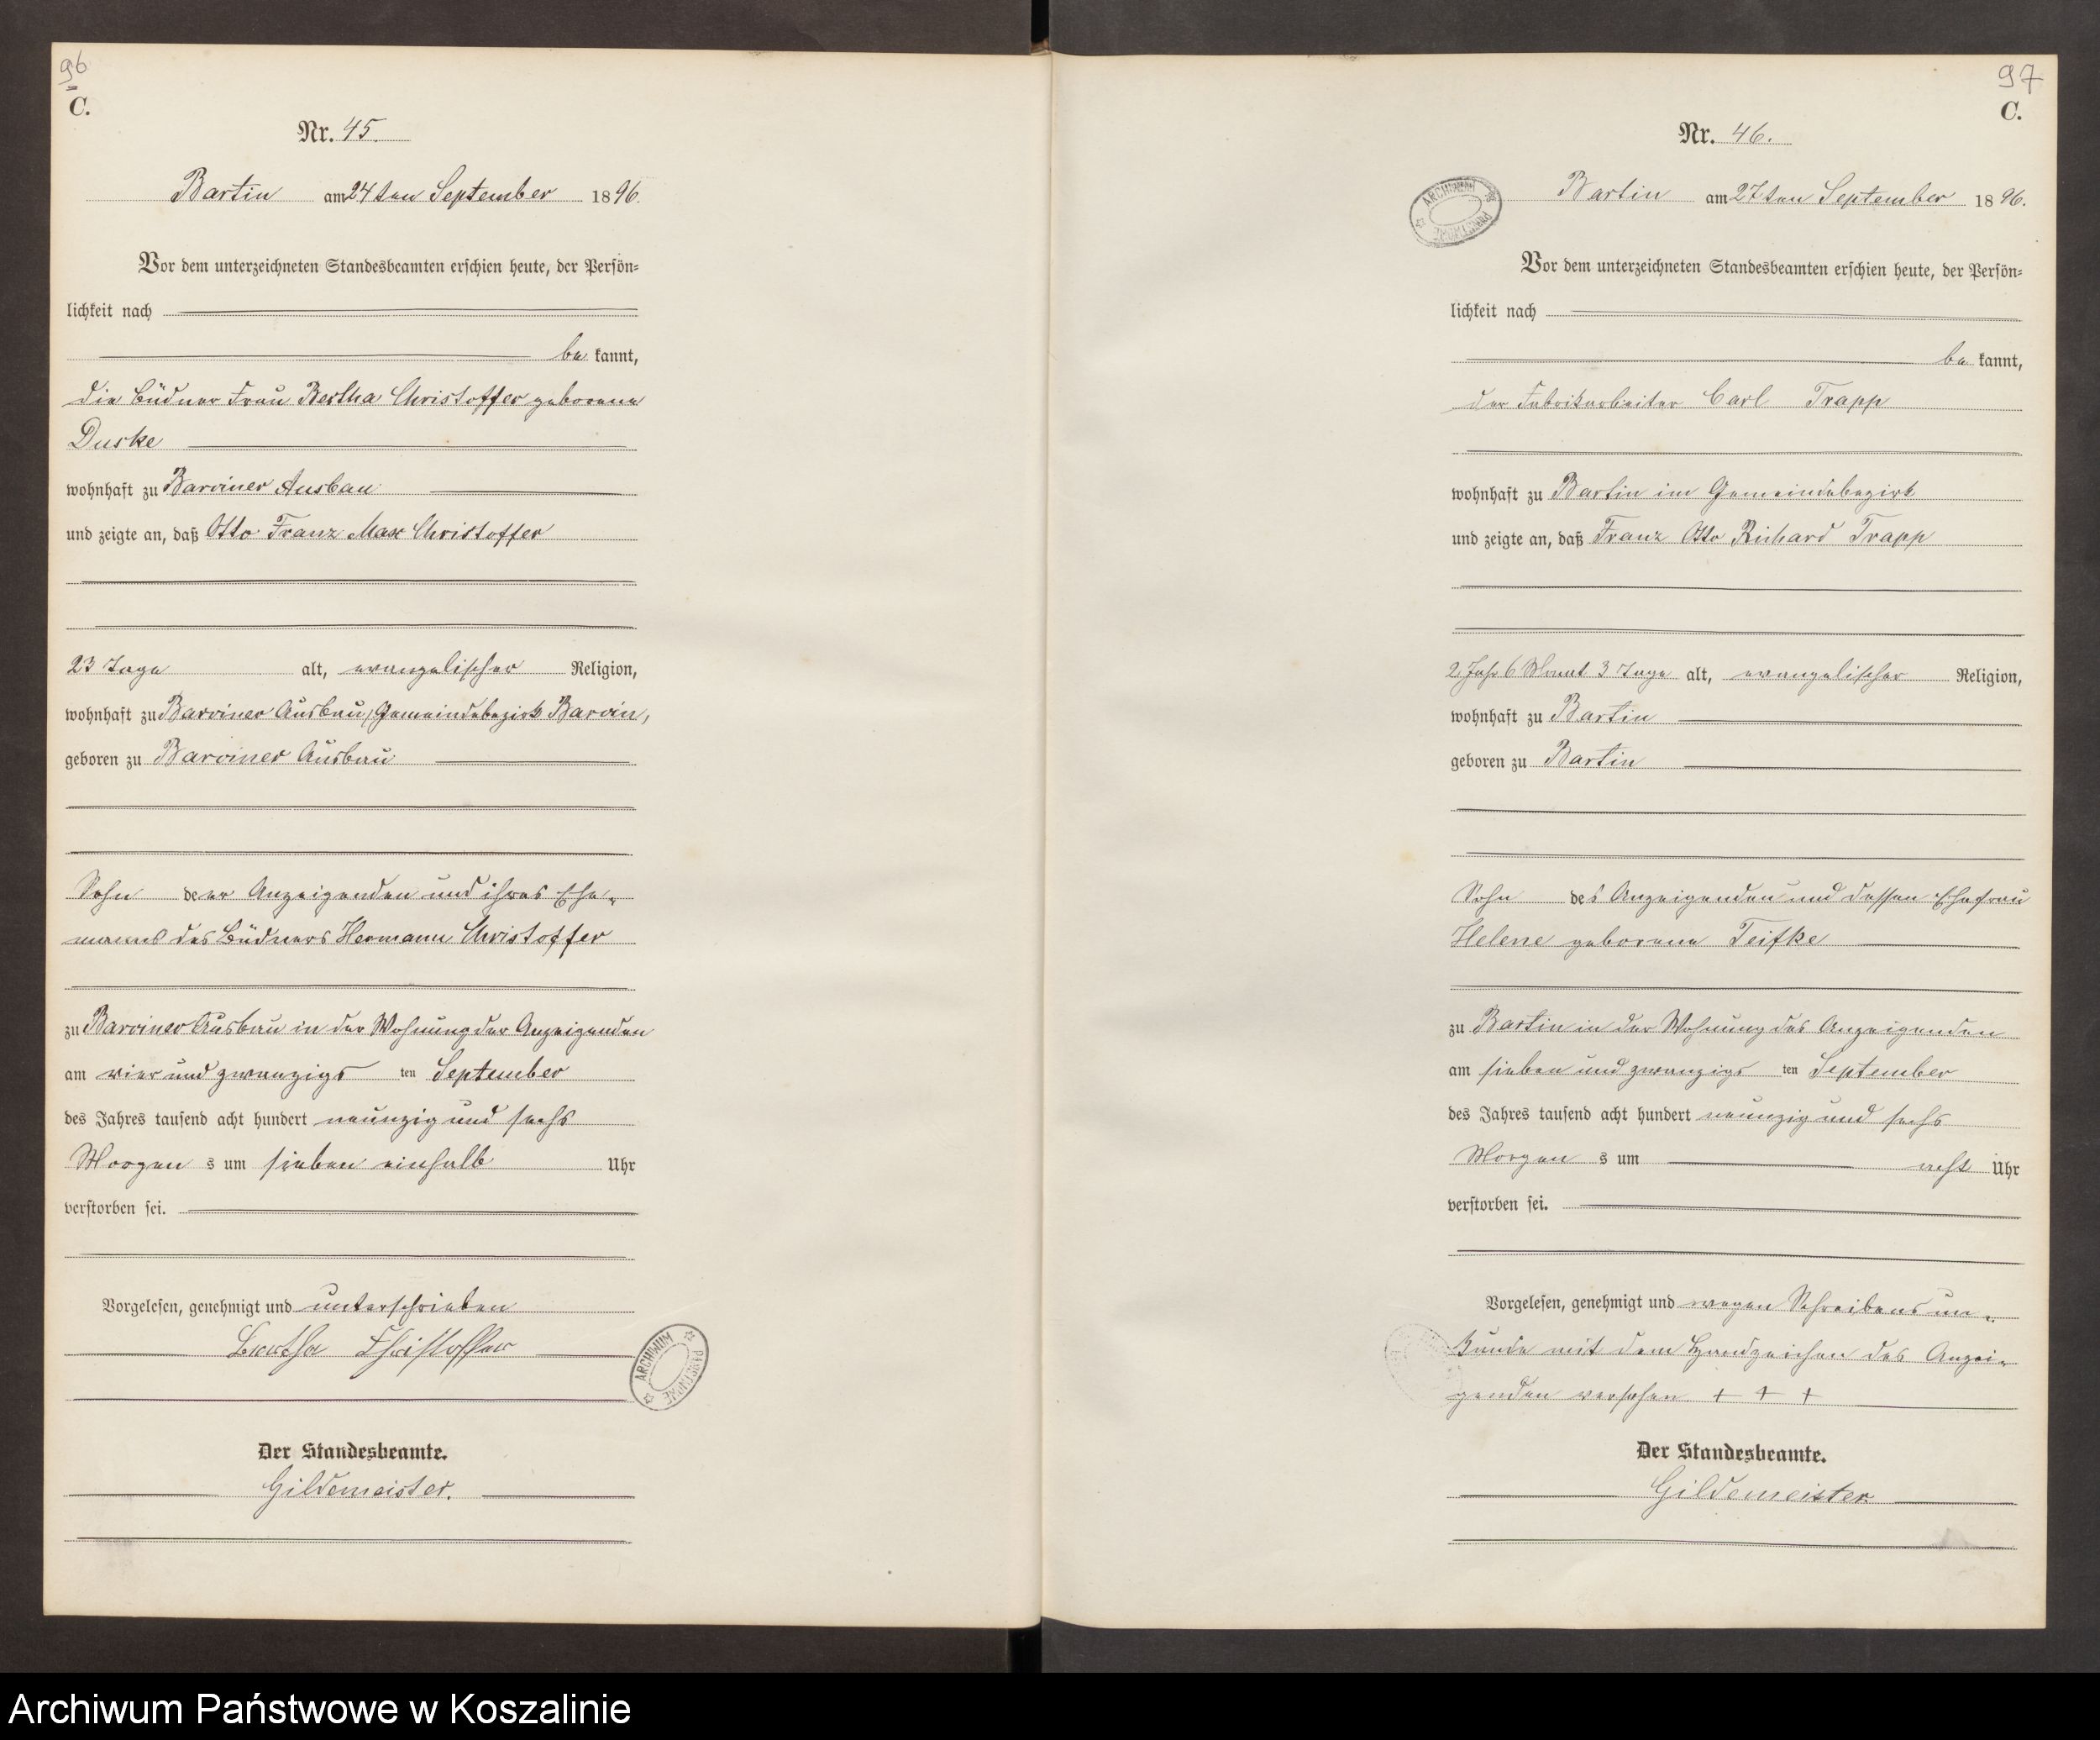 96
C.
Nr. 45.
Bartin am 24ten September 1896.
Vor dem unterzeichneten Standesbeamten erschien heute, der Persön=
lichkeit nach
be kannt,
die Büdner Frau Bertha Christoffer geborene
Duske
wohnhaft zu Barviner Ausbau
und zeigte an, daß Otto Franz Max Christoffer
23 Tage alt, evangelischer Religion,
wohnhaft zu Barviner Ausbau, Gemeindebezirk Barvin,
geboren zu Barviner Ausbau
Sohn der Anzeigenden und ihres Ehe=
manns des Büdners Hermann Christoffer
zu Barviner Ausbau in der Wohnung der Anzeigenden
am vier und zwanzigs ten September
des Jahres tausend acht hundert neunzig und sechs
Morgen s um sieben einhalb Uhr
verstorben sei.
Vorgelesen, genehmigt und unterschrieben
Bertha Christoffer
ARCHIWUM PAŃSTWOWE
Der Standesbeamte.
Gildemeister.
97
C.
Nr. 46.
ARCHIWUM PAŃSTWOWE
Bartin am 27ten September 1896.
Vor dem unterzeichneten Standesbeamten erschien heute, der Persön=
lichkeit nach
be kannt,
der Fabrikarbeiter Carl Trapp
wohnhaft zu Bartin im Gemeindebezirk
und zeigte an, daß Franz Otto Richard Trapp
2 Jahr 6 Monat 3 Tage alt, evangelischer Religion,
wohnhaft zu Bartin
geboren zu Bartin
Sohn des Anzeigenden und dessen Ehefrau
Helene geborene Teifke
zu Bartin in der Wohnung des Anzeigenden
am sieben und zwanzigs ten September
des Jahres tausend acht hundert neunzig und sechs
Morgen s um acht Uhr
verstorben sei.
Vorgelesen, genehmigt und wegen Schreibens un=
kunde mit dem Handzeichen des Anzei=
genden versehen + + +
Der Standesbeamte.
Gildemeister
Archiwum Państwowe w Koszalinie